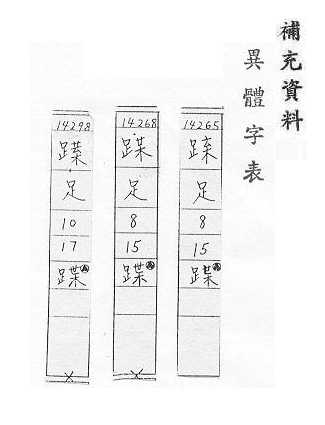 補充資料
異體字表
14265
足
8
15
蹀
14268
足
8
15
蹀
14298
足
10
17
蹀